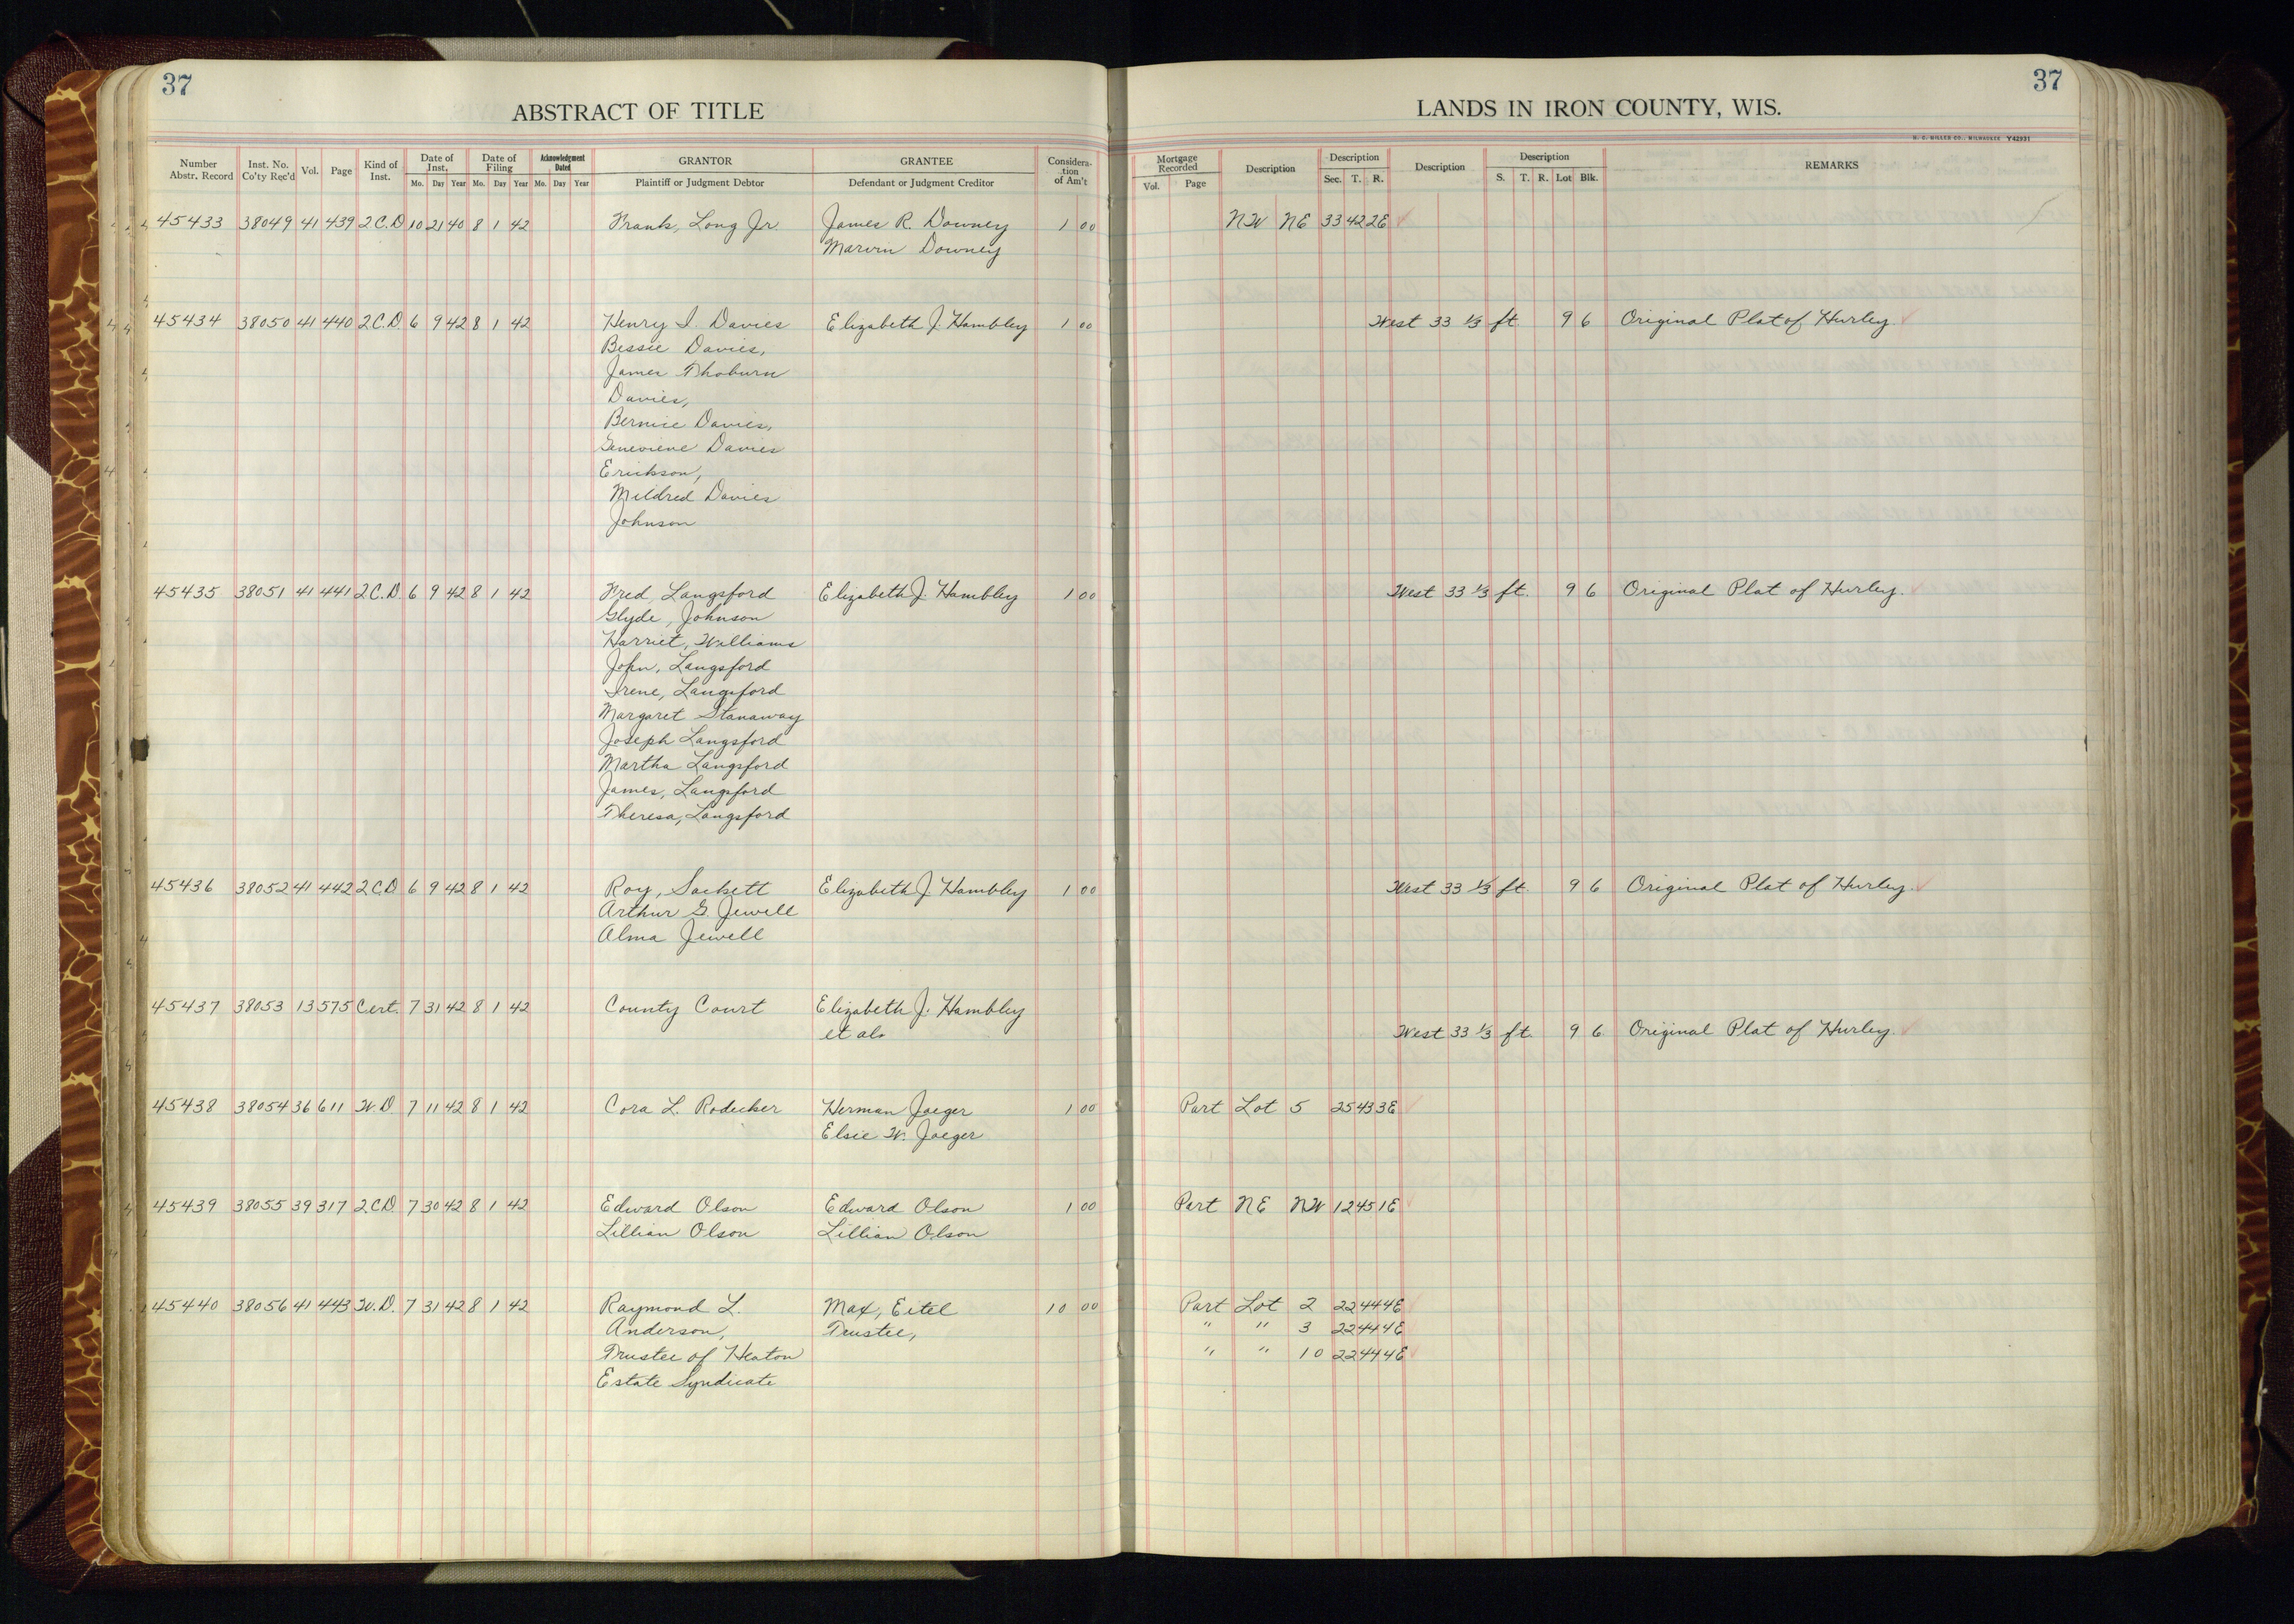 37
ABSTRACT OF TITLE
Number Abstr. Record Inst. No. Co'ty Rec'd Vol. Page Kind of Inst. Date of Inst. Mo. Day Year Date of Filing Mo. Day Year Acknowledgment Dated Mo. Day Year GRANTOR Plaintiff or Judgment Debtor GRANTEE Defendant or Judgment Creditor Considera-tion of Am't
45433 38049 41 439 2C.D 10 21 40 8 1 42 Frank, Long Jr James R. Downey 1 00
Marvin Downey
45434 38050 41 440 2C.D. 6 9 42 8 1 42 Henry I. Davies Elizabeth J. Hambley 1 00
Bessie Davies,
James Thoburn
Davies,
Bernice Davies,
Genevieve Davies
Erickson,
Mildred Davies
Johnson
45435 38051 41 441 2C.D. 6 9 42 8 1 42 Fred, Langsford Elizabeth J. Hambley 1 00
Glyde, Johnson
Harriet, Williams
John, Langsford
Irene, Langsford
Margaret Stanaway
Joseph Langsford
Martha Langsford
James, Langsford
Theresa, Langsford
45436 38052 41 442 2CD 6 9 42 8 1 42 Roy, Sackett Elizabeth J. Hambley 1 00
Arthur G. Jewell
Alma Jewell
45437 38053 13 575 Cert. 7 31 42 8 1 42 County Court Elizabeth J. Hambley
et als
45438 38054 36 611 W.D 7 11 42 8 1 42 Cora L. Rodecker Herman Jaeger 1 00
Elsie W. Jaeger
45439 38055 39 317 2CD. 7 30 42 8 1 42 Edward Olson Edward Olson 1 00
Lillian Olson Lillian Olson
45440 38056 41 443 W.D. 7 31 42 8 1 42 Raymond L. Max, Eitel 10 00
Anderson, Trustee,
Trustee of Heaton
Estate Syndicate
37
LANDS IN IRON COUNTY, WIS.
H. C. MILLER CO., MILWAUKEE Y42931
Mortgage Recorded Vol. Page Description Description Sec. T. R. Description Description S. T. R. Lot Blk. REMARKS
NW NE 33 42 2E
West 33 1/3 ft. 9 6 Original Plat of Hurley.
West 33 1/3 ft. 9 6 Original Plat of Hurley.
West 33 1/3 ft. 9 6 Original Plat of Hurley.
West 33 1/3 ft. 9 6 Original Plat of Hurley.
Part Lot 5 25 43 3E
Part NE NW 12 45 1E
Part Lot 2 22 44 4E
" " 3 22 44 4E
" " 10 22 44 4E